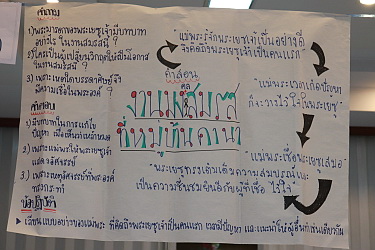 คำถาม
1) พระมารดาพระเยซูเจ้ามีบทบาท
อย่างไร ในงานสมรสนี้ ?
2) ใครเป็นผู้เปลี่ยนวิกฤติให้เป็นโอกาส
ในงานสมรสนี้ ?
3) เพราะเหตุใดบรรดาศิษย์จึง
มีความเชื่อในพระองค์ ?
คำตอบ
1) มีบทบาทในการแก้ไข
ปัญหา เมื่อเห็นว่าเหล้าหมด
2) เพราะแม่พระให้พระเยซูเจ้า
แสดงอัศจรรย์
3) เพราะเหตุอัศจรรย์ที่พระองค์
ทรงกระทำ
ข้อปฏิบัติ
เลียนแบบอย่างของแม่พระ ที่คิดถึงพระเยซูเจ้าเป็นคนแรก เวลามีปัญหา และแนะนำให้ผู้อื่นทำเช่นเดียวกัน
"แม่พระรู้จักพระเยซูเจ้าเป็นอย่างดี
จึงคิดถึงพระเยซูเจ้าเป็นคนแรก"
คำสอน
คือ
"แม่พระเวลาเกิดปัญหา
ก็จะวางใจในพระเยซู"
งานสมรส
ที่หมู่บ้านคานา
"แม่พระเชื่อพระเยซูเสมอ"
"พระเยซูทรงเติมเต็มความสมบูรณ์และ
เป็นความชื่นชมยินดีกับผู้ที่เชื่อ ไว้ใจ"